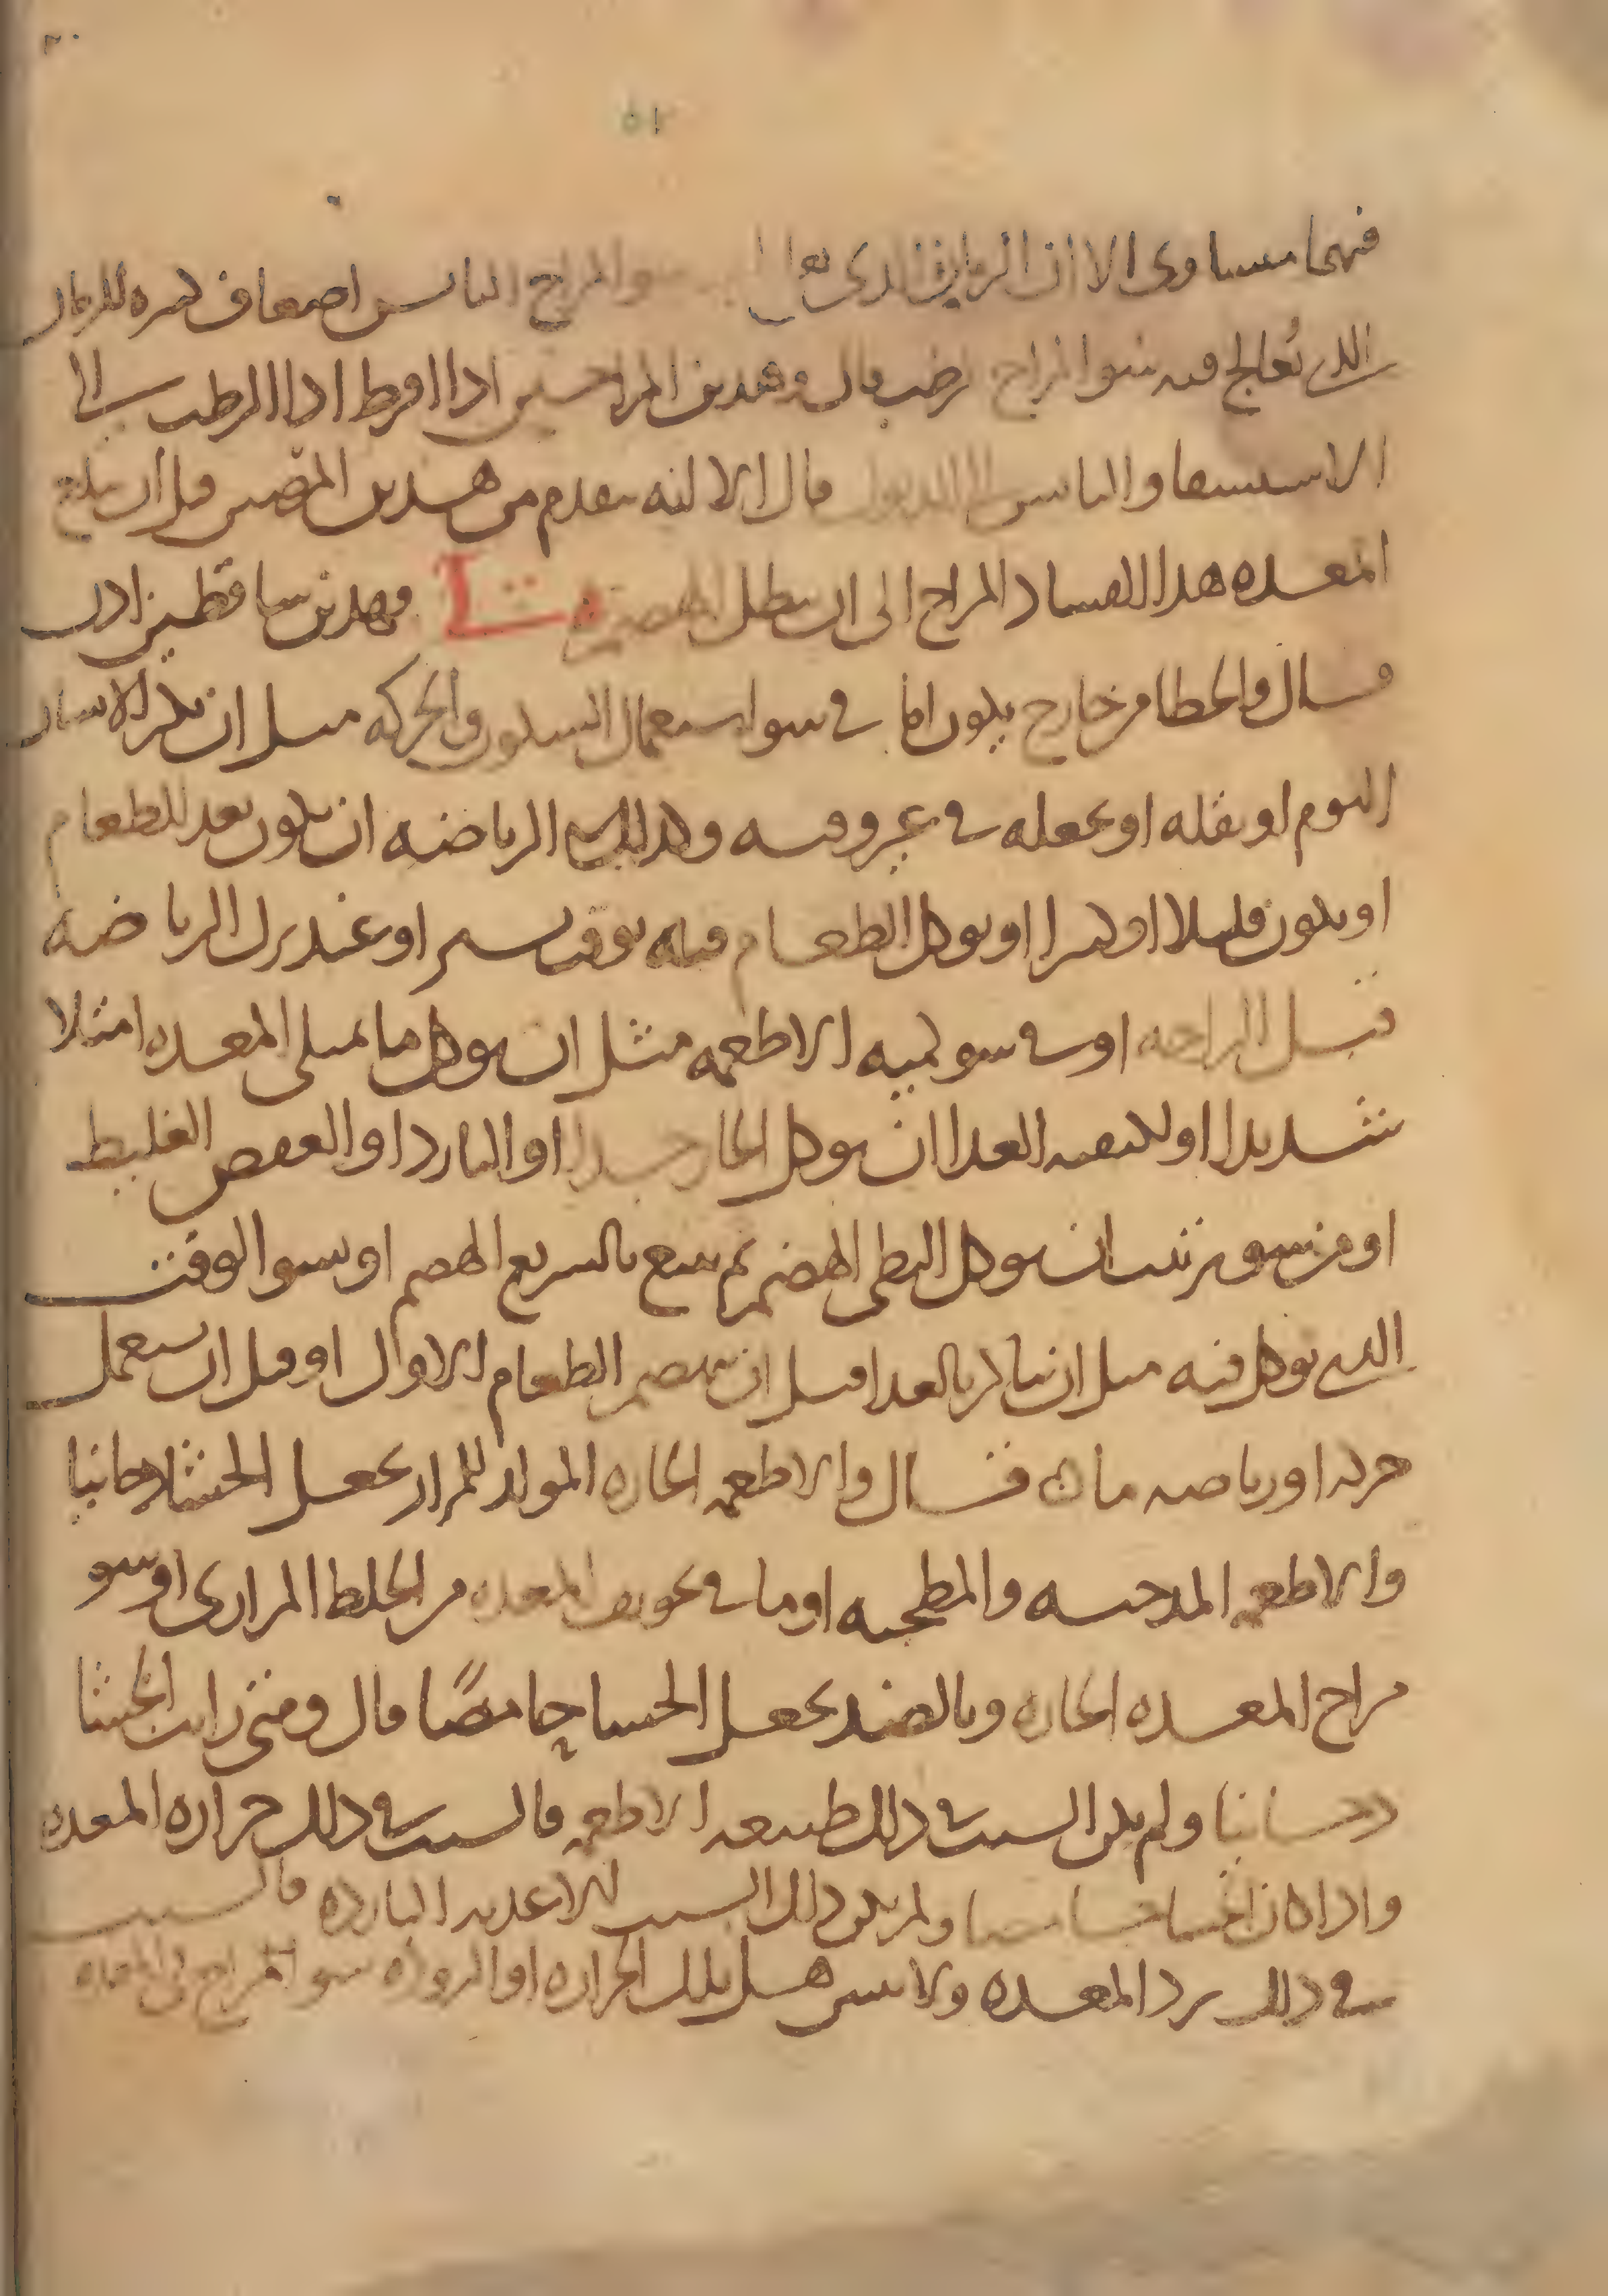 ٥٢
فيهما مساوى الا ان الزمان الذى يعالج سو المزاج اليابس اضعاف كثيره للزمان
الذي تعالج فيه سو المزاج الرطب قال وهذين المزاجين اذا افرطا ادا الرطب الى
الاستسقا واليابس الى الذبول قال الا انه يتقدم من هذين المرضين قبل ان تبلغ
المعده هذا الفساد المزاج الى ان يبطل الهضم فهذين ساقطين اذن
قال والخطا من خارج يكون اما في سو استعمال السكون والحركه مثل ان يكثر الانسان
النوم او يقله او يجعله في غير وقته وكذلك الرياضه ان يكون بعد الطعام
او يكون قليلا او كثيرا او يوكل الطعام قبله بوقت يسير او عند ترك الرياضه
قبل الراحه او في سو كميه الاطعمه مثل ان يوكل ما يملى المعده امتلا
شديدا او لكيفيه الغدا ان يوكل الحار جدا او البارد او العفص الغليظ
او من سو ترتيب ان يوكل البطى الهضم ثم يتبع بالسريع الهضم او بسو الوقت
الذي يوكل فيه مثل ان يباكر بالغدا قبل ان ينهضم الطعام الاول او قبل ان يستعمل
حركه او رياضه ما قال والاطعمه الحاره المولد للمرار يجعل الجشا دخانيا
والاطعمه المدخنه والمطجنه او ما في تجويف المعده من الخلط المرارى او سو
مزاج المعده الحاره وبالضد يجعل الجشا حامضًا قال ومتى رايت الجشا
دخانيا ولم يكن السبب في ذلك طبيعه الاطعمه فالسبب في ذلك حراره المعده
واذا كان الجشا حامضا ولم يكن ذلك السبب الاغذيه البارده فالسبب
في ذلك برد المعده ولا تنس هل تلك الحراره او البروده سو المزاج في المعده